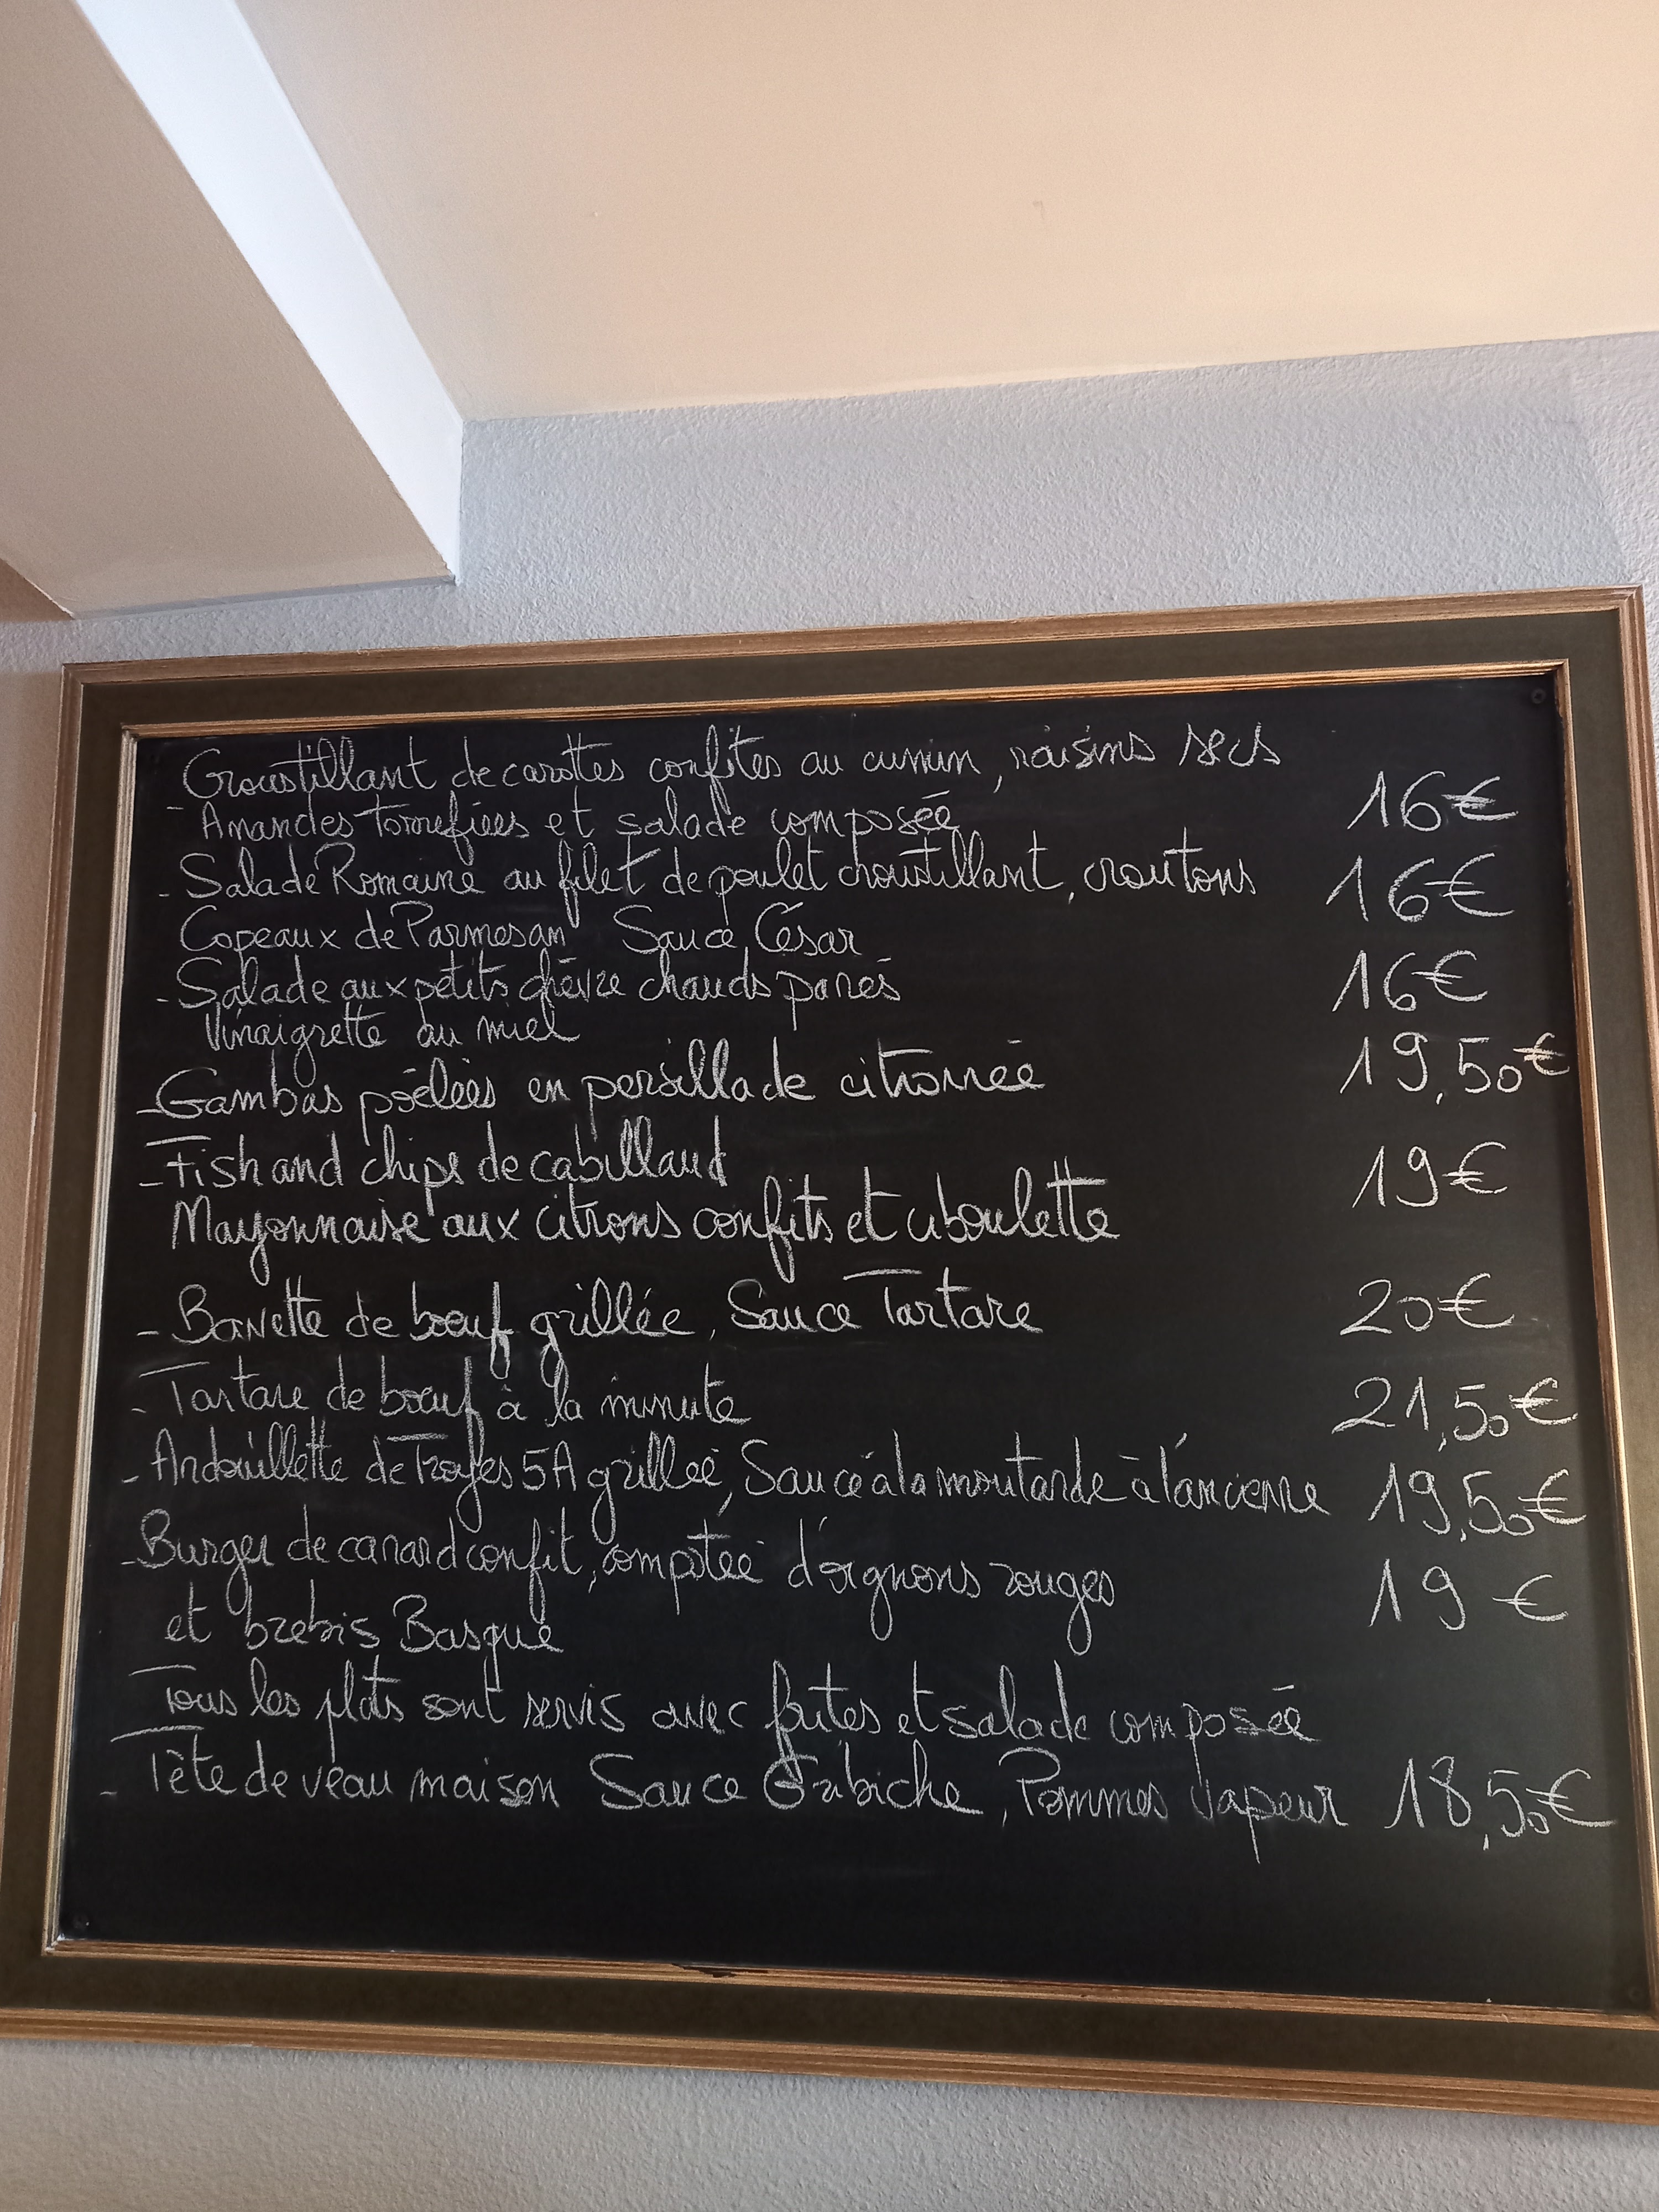 - Croustillant de carottes confites au cumin, raisins secs
Amandes torrefiées et salade composée 16€
- Salade Romaine au filet de poulet croustillant, croutons 16€
Copeaux de Parmesan Sauce César
- Salade aux petits chèvre chauds panés 16€
Vinaigrette au miel
- Gambas poêlées en persillade citronnée 19,50€
- Fish and chips de cabillaud 19€
Mayonnaise aux citrons confits et ciboulette
- Bavette de boeuf grillée, Sauce Tartare 20€
- Tartare de boeuf à la minute 21,50€
- Andouillette de Troyes 5A grillée, Sauce à la moutarde à l'ancienne 19,50€
- Burger de canard confit, compotée d'oignons rouges 19 €
et brebis Basque
Tous les plats sont servis avec frites et salade composée
- Tête de veau maison Sauce Gribiche, Pommes vapeur 18,50€